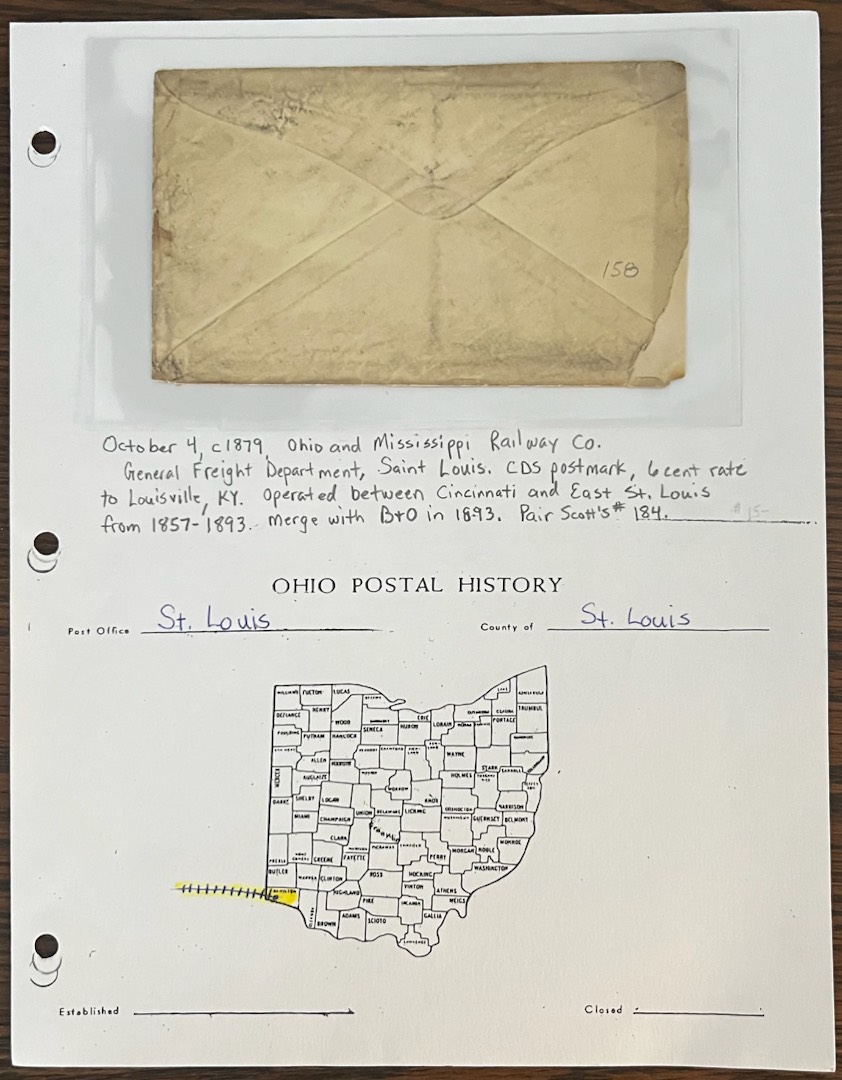 158
October 4, c1879, Ohio and Mississippi Railway Co.
General Freight Department, Saint Louis. CDS postmark, 6 cent rate
to Louisville, KY. Operated between Cincinnati and East St. Louis
from 1857-1893. Merge with B+O in 1893. Pair Scott's# 184. $15-
OHIO POSTAL HISTORY
Post Office St. Louis County of St. Louis
WILLIAMS FULTON LUCAS ASHTABULA
DEFIANCE HENRY WOOD ERIE LORAIN GEAUGA TRUMBUL
PAULDING PUTNAM HANCOCK SENECA HURON PORTAGE
ALLEN WAYNE STARK
MERCER AUGLAIZE HOLMES
DARKE SHELBY LOGAN MORROW KNOX COSHOCTON HARRISON
MIAMI CHAMPAIGN UNION DELAWARE LICKING GUERNSEY BELMONT
CLARK Franklin MONROE
PREBLE GREENE FAYETTE PERRY MORGAN NOBLE
BUTLER WARREN CLINTON ROSS HOCKING WASHINGTON
HAMILTON HIGHLAND PIKE VINTON ATHENS MEIGS
BROWN ADAMS SCIOTO GALLIA
LAWRENCE
Established Closed